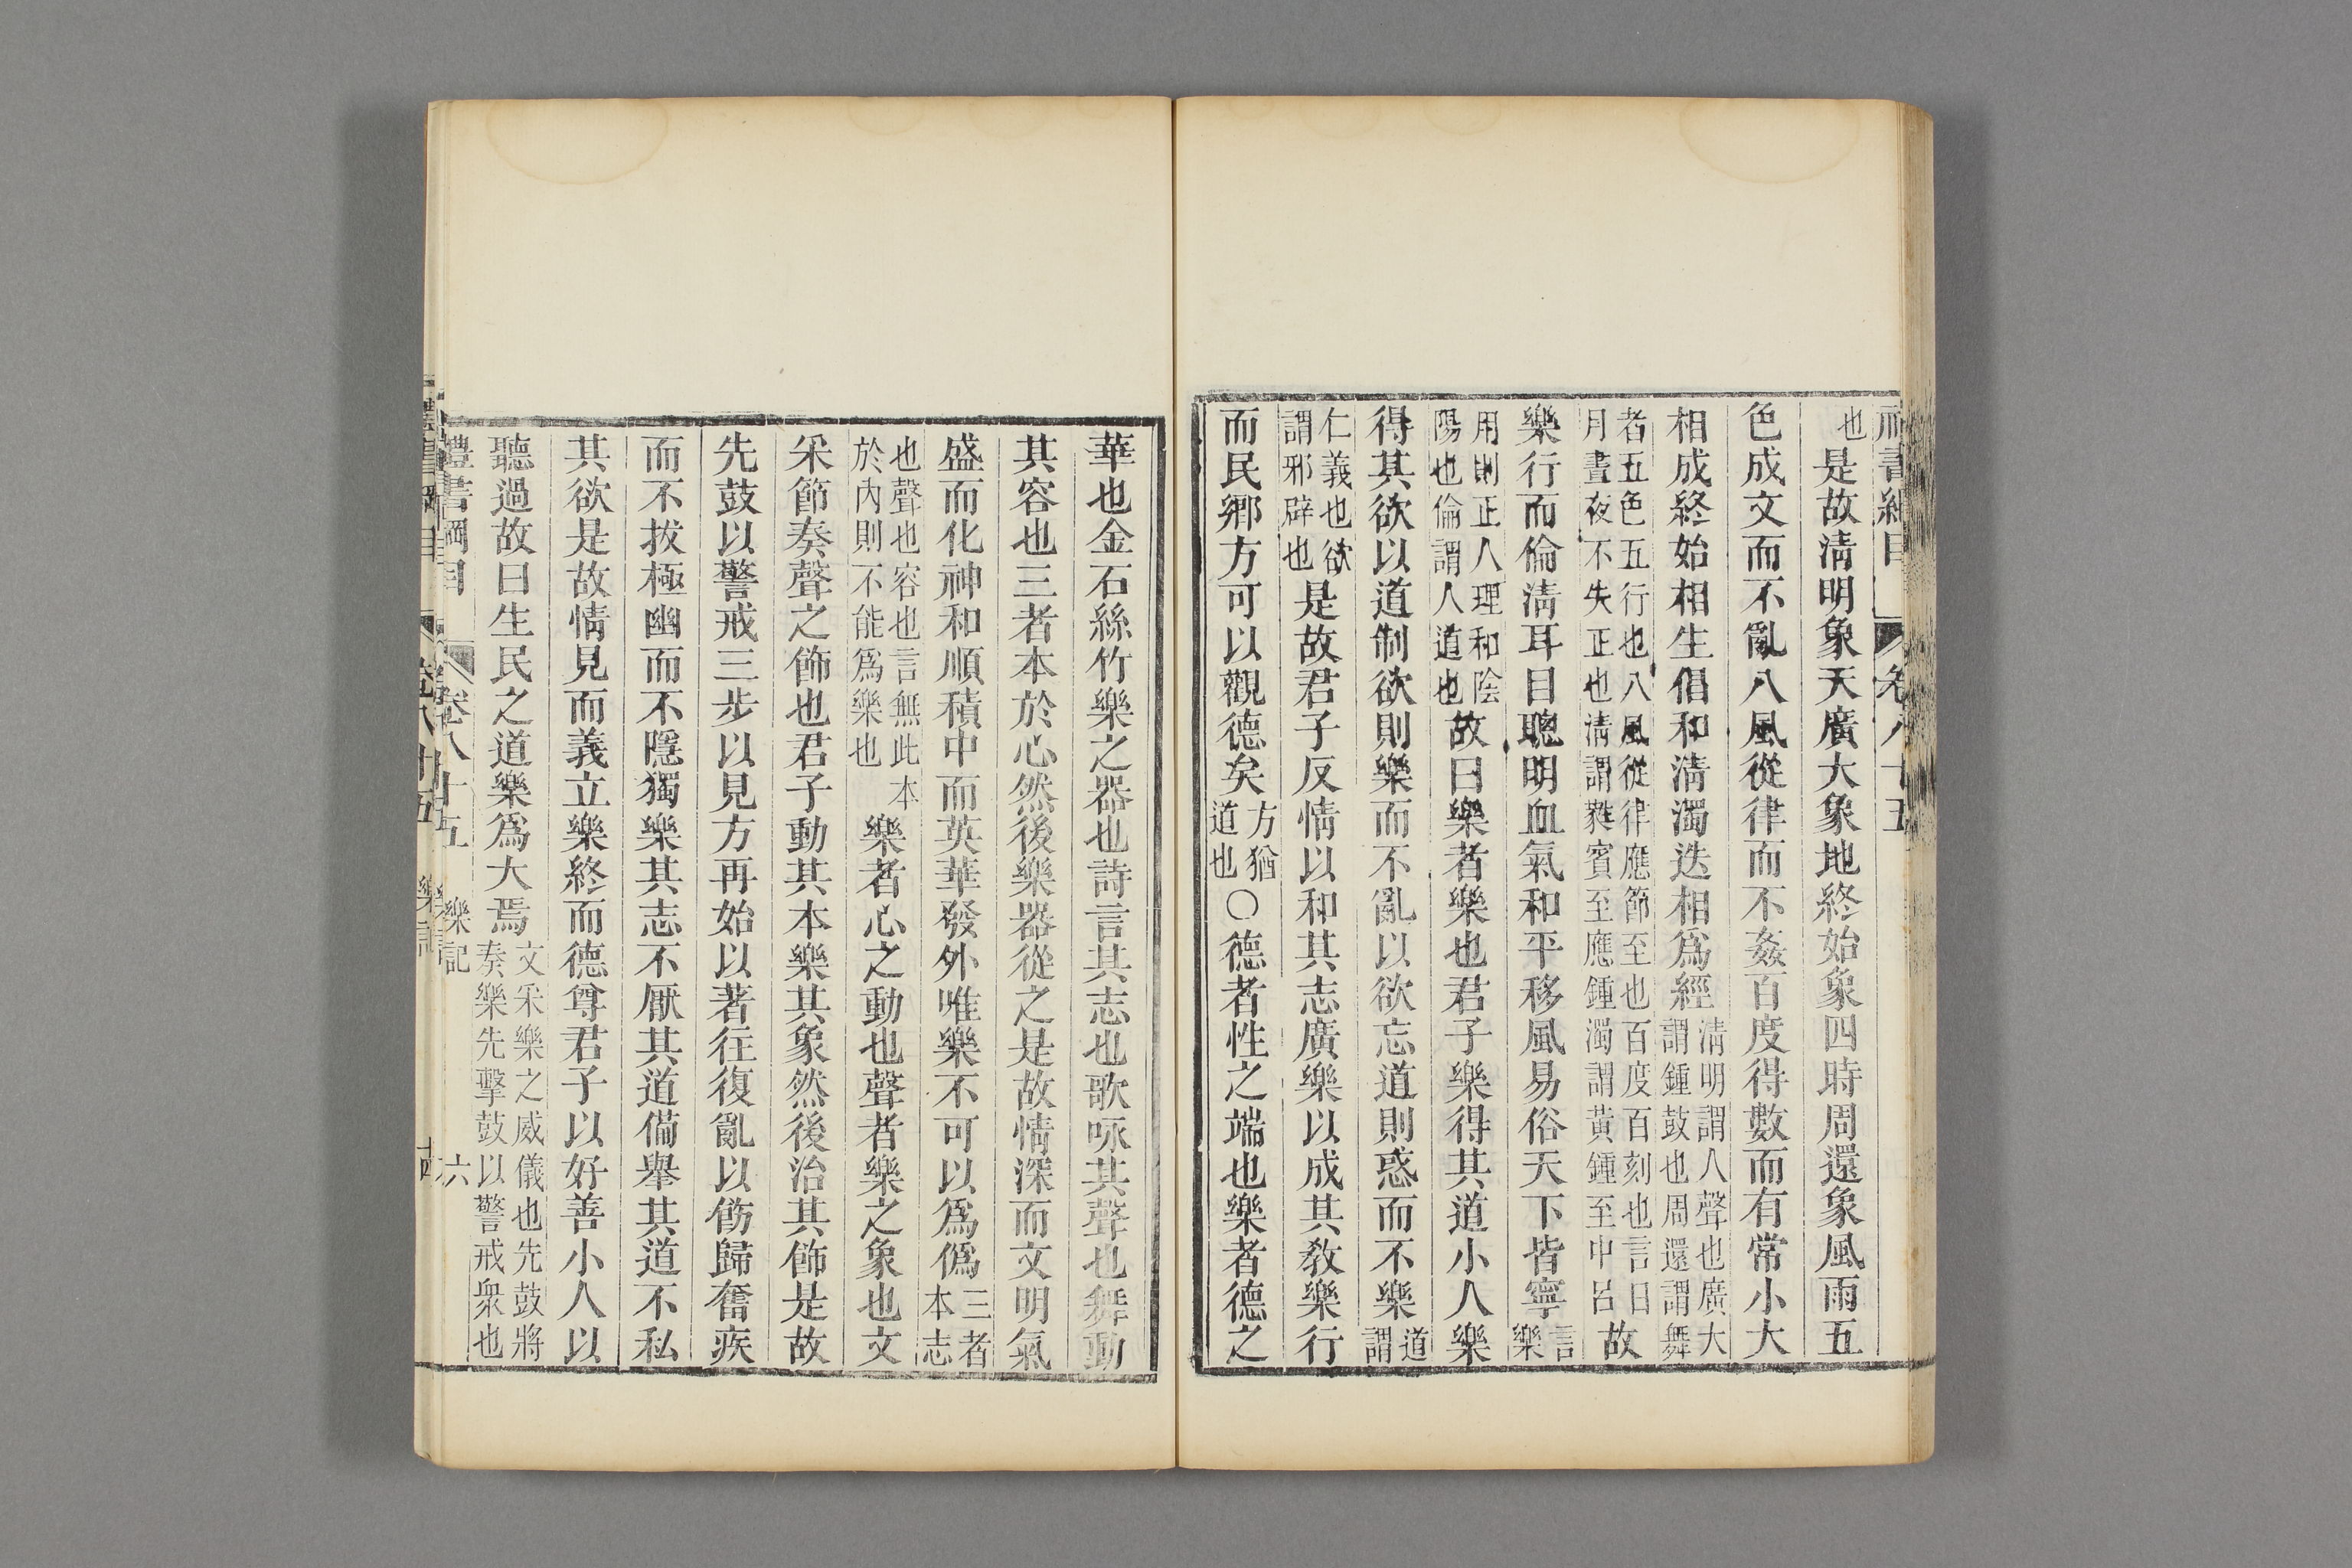 也是故淸明象天廣大象地終始象四時周還象風雨五
色成文而不亂八風從律而不姦百度得數而有常小大
相成終始相生倡和淸濁迭相爲經淸明謂人聲也廣大謂鍾鼓也周還謂舞
者五色五行也八風從律應節至也百度百刻也言日月晝夜不失正也淸謂蕤賓至應鍾濁謂黃鍾至中呂故
樂行而倫淸耳目聰明血氣和平移風易俗天下皆寧言樂
用則正人理和陰陽也倫謂人道也故曰樂者樂也君子樂得其道小人樂
得其欲以道制欲則樂而不亂以欲忘道則惑而不樂道謂
仁義也欲謂邪辟也是故君子反情以和其志廣樂以成其敎樂行
而民鄕方可以觀德矣方猶道也○德者性之端也樂者德之
華也金石絲竹樂之器也詩言其志也歌咏其聲也舞動
其容也三者本於心然後樂器從之是故情深而文明氣
盛而化神和順積中而英華發外唯樂不可以爲僞三者本志
也聲也容也言無此本於內則不能爲樂也樂者心之動也聲者樂之象也文
采節奏聲之飾也君子動其本樂其象然後治其飾是故
先鼓以警戒三步以見方再始以著往復亂以飭歸奮疾
而不拔極幽而不隱獨樂其志不厭其道備舉其道不私
其欲是故情見而義立樂終而德尊君子以好善小人以
聽過故曰生民之道樂爲大焉文采樂之威儀也先鼓將奏樂先擊鼓以警戒衆也
禮書綱目 卷八十五 樂記 六